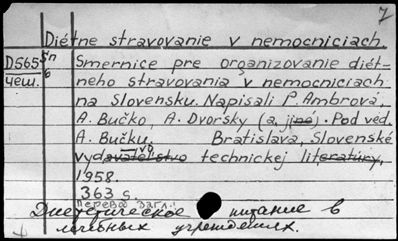 7
Diétne stravovanie v nemocniciach.
D565 5п Smernice pre organizovanie diét-
чеш. 6 neho stravovania v nemocniciach
na Slovensku. Napísali P. Ambrová,
A. Bučko, A. Dvorśky (a. jiné). Pod ved.
A. Bučku. Bratislava, Slovenské
vydavateľstvo technickej literatúry,
1958.
363 s.
Перевод загл.:
Диетическое питание в
лечебных учреждениях.